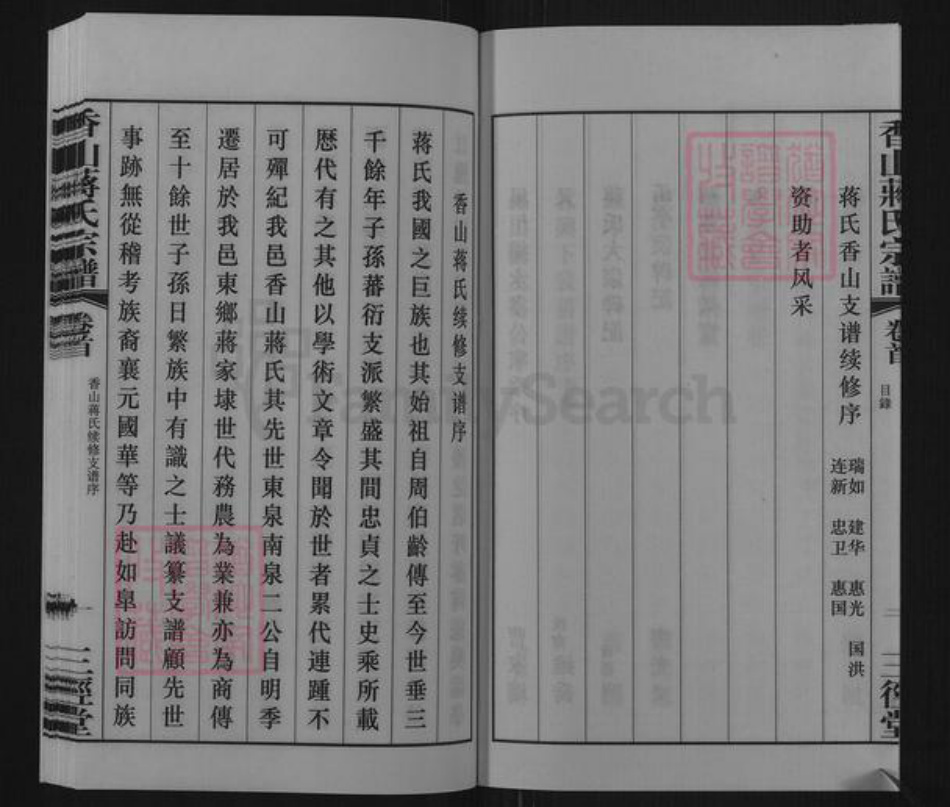 香山蔣氏宗譜 卷首 目錄 三徑堂
蒋氏香山支谱续修序 瑞如 建华 惠光 国洪
连新 忠卫 惠国
资助者风采
香山蒋氏续修支谱序
蔣氏我國之巨族也其始祖自周伯齡傳至今世垂三
千餘年子孫蕃衍支派繁盛其間忠貞之士史乘所載
歷代有之其他以學術文章令聞於世者累代連踵不
可殫紀我邑香山蔣氏其先世東泉南泉二公自明季
遷居於我邑東鄉蔣家埭世代務農為業兼亦為商傳
至十餘世子孫日繁族中有識之士議纂支譜顧先世
事跡無從稽考族裔襄元國華等乃赴如皐訪問同族
香山蔣氏宗譜 卷首 香山蒋氏续修支谱序 一 三徑堂
FamilySearch